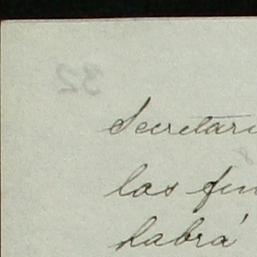 Secretari
las fun
habrá